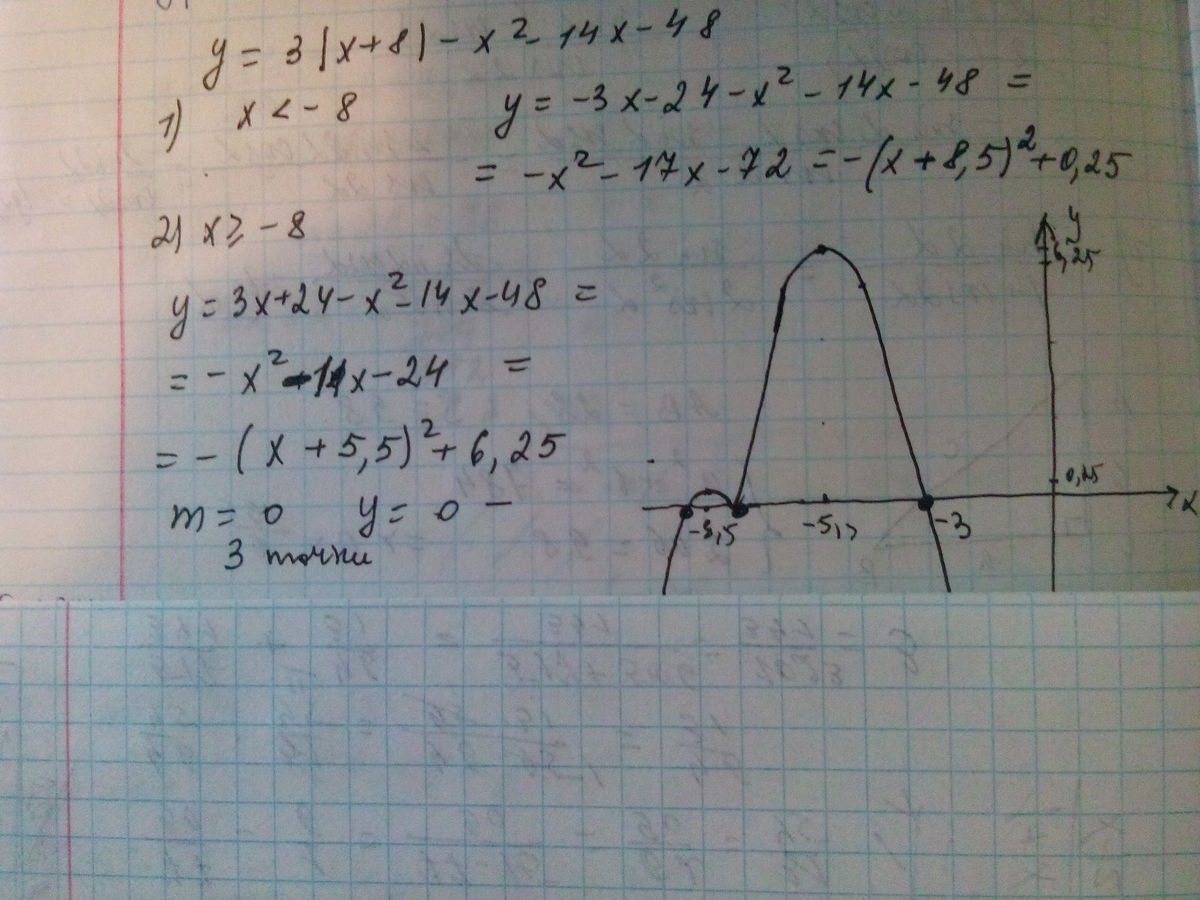 y = 3|x+8| - x² - 14x - 48
1) x < -8 y = -3x - 24 - x² - 14x - 48 =
= -x² - 17x - 72 = -(x + 8,5)² + 0,25
2) x ≥ -8
y = 3x + 24 - x² - 14x - 48 =
= -x² - 11x - 24 =
= -(x + 5,5)² + 6,25
m = 0 y = 0 -
3 точки
y
6,25
0,25
x
-8,5
-3